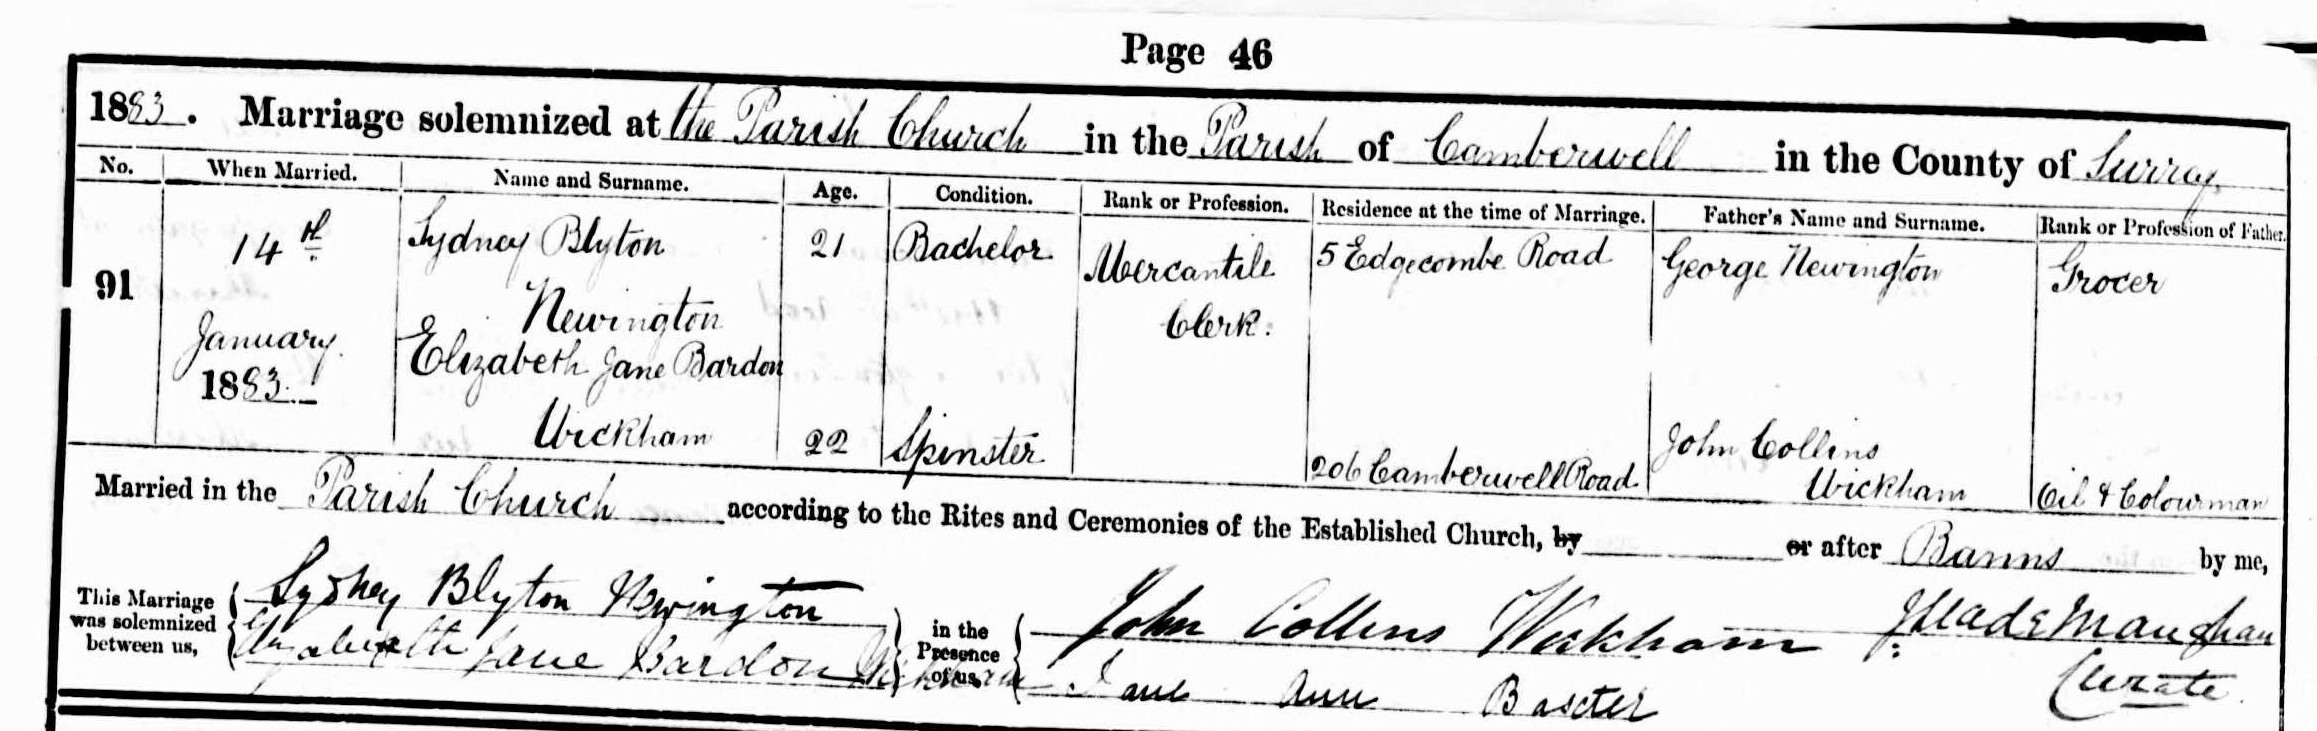 Page 46
1883. Marriage solemnized at the Parish Church in the Parish of Camberwell in the County of Surrey
No. When Married. Name and Surname. Age. Condition. Rank or Profession. Residence at the time of Marriage. Father's Name and Surname. Rank or Profession of Father.
91 14th January 1883. Sydney Blyton Newington 21 Bachelor Mercantile Clerk. 5 Edgecombe Road George Newington Grocer
Elizabeth Jane Bardon Wickham 22 Spinster 206 Camberwell Road John Collins Wickham Oil & Colourman
Married in the Parish Church according to the Rites and Ceremonies of the Established Church, by or after Banns by me,
This Marriage was solemnized between us, Sydney Blyton Newington in the Presence of us, John Collins Wickham Maughan
Elizabeth Jane Bardon Wickham Jane Ann Baxter Curate